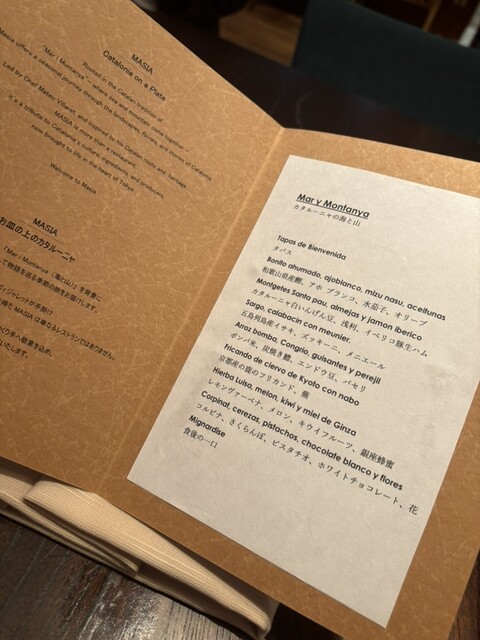 MASIA
Catalonia on a Plate
Rooted in the Catalan tradition of
"Mar i Montanya" – where sea and mountain come together –
Masia offers a seasonal journey through the landscapes, flavors, and stories of Catalonia.
MASIA is more than a restaurant.
Led by Chef Mateu Villaret, and inspired by his Catalan roots and heritage,
it is a tribute to Catalonia's culture, ingredients, and producers,
now brought to life in the heart of Tokyo.
Welcome to Masia
MASIA
お皿の上のカタルーニャ
「Mar i Montanya（海と山）」を背景に
て物語を巡る季節の旅をお届けします。
ヴィジャレトが手掛け
MASIA は単なるレストランではありません。
いたします。
Mar y Montanya
カタルーニャの海と山
Tapas de Bienvenida
タパス
Bonito ahumado, ajoblanco, mizu nasu, aceitunas
和歌山県産鰹、アホ ブランコ、水茄子、オリーブ
Montgetes Santa pau, almejas y jamon iberico
カタルーニャ白いんげん豆、浅利、イベリコ豚生ハム
Sargo, calabacin con meunier.
五島列島産イサキ、ズッキーニ、メニエール
Arroz bomba, Congrio, guisantes y perejil
ボンバ米、炭焼き鱧、エンドウ豆、パセリ
Fricando de ciervo de Kyoto con nabo
京都産の鹿のフリカンド、蕪
Hierba Luisa, melon, kiwi y miel de Ginza
レモンヴァーベナ、メロン、キウイフルーツ、銀座蜂蜜
Corpinat, cerezas, pistachos, chocolate blanco y flores
コルピナ、さくらんぼ、ピスタチオ、ホワイトチョコレート、花
Mignardise
食後の一口